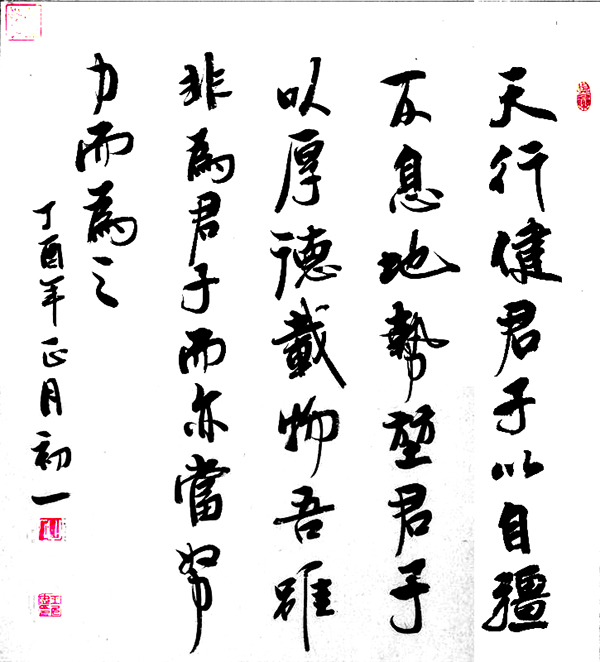 天行健君子以自疆
不息地勢堃君子
以厚德載物吾雖
非為君子而亦當努
力而為之
丁酉年正月初一